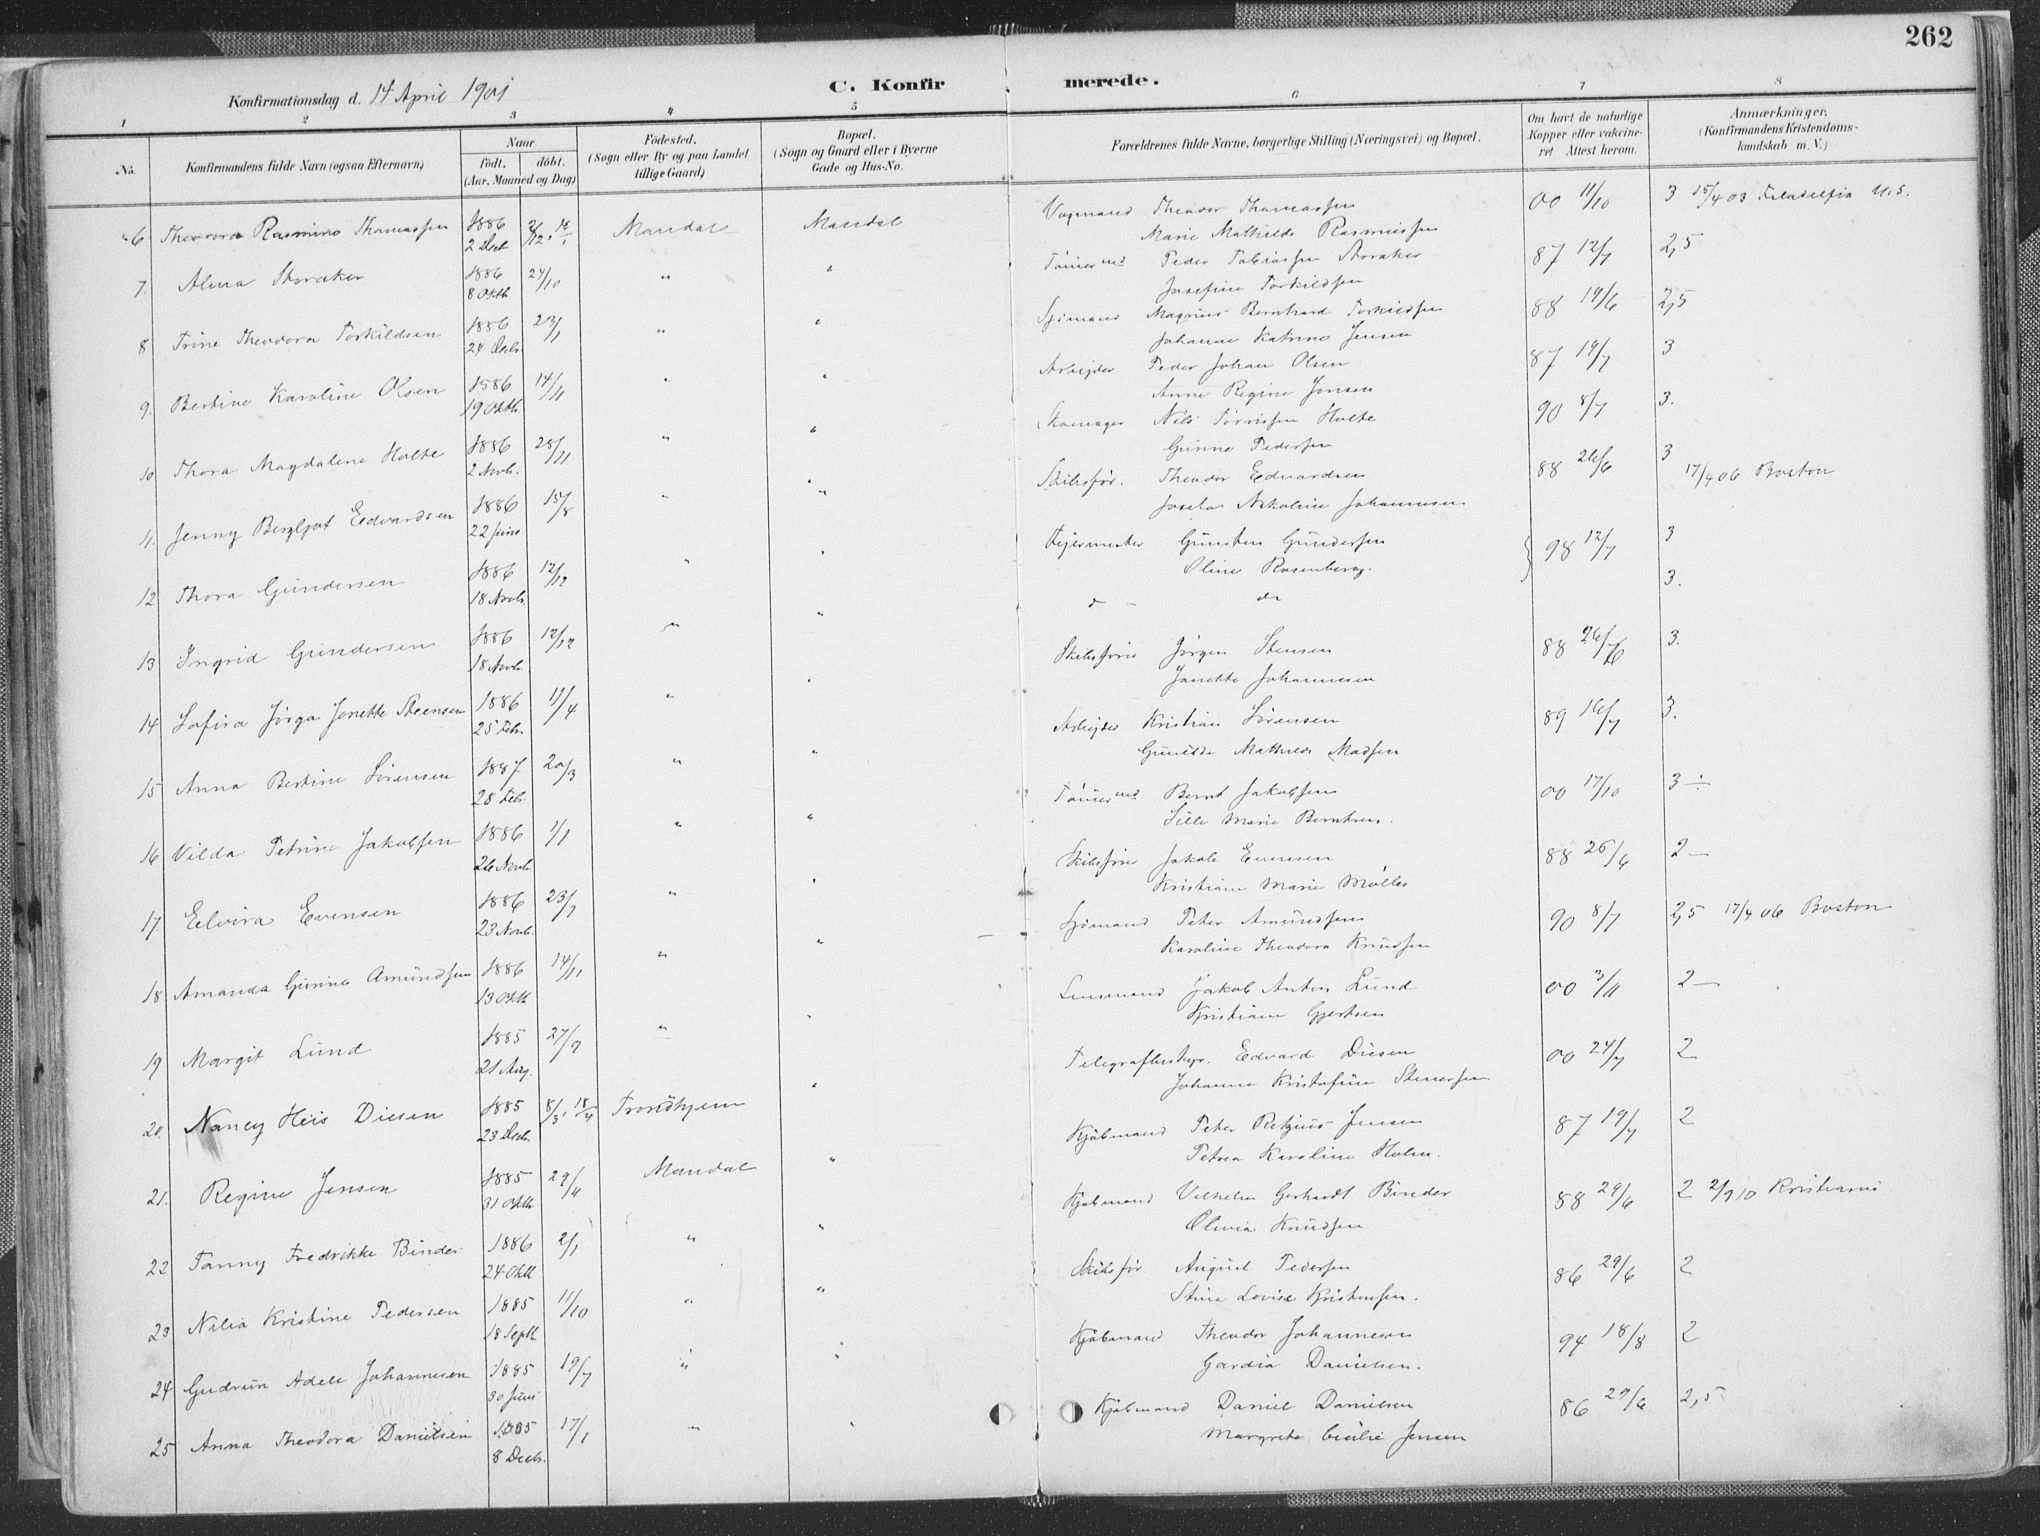 262
Konfirmationsdag d. 14 April 1901
C. Konfirmerede.
1 2 3 4 5 6 7 8
No.
Konfirmandens fulde Navn (ogsaa Efternavn)
Naar
født. døbt.
(Aar, Maaned og Dag)
Fødested.
(Sogn eller By og paa Landet
tillige Gaard)
Bopæl.
(Sogn og Gaard eller i Byerne
Gade og Hus-No.
Forældrenes fulde Navne, borgerlige Stilling (Næringsvei) og Bopæl.
Om havt de naturlige
Kopper eller vakcine-
ret Attest herom.
Anmærkninger.
(Konfirmandens Kristendoms-
kundskab m. V.)
6 Theodora Rasmine Thomassen 1886 2 Decb. Mandal Mandal Theodor Thomassen 00 11/10 3 15/4 03 Filadelfia U.S.
Marie Mathilde Rasmussen
7. Alma Storaker 1886 8 Oktb 24/10 " " Tømmermd Peder Tobiassen Storaker 87 12/7 2,5
Josefine Torkildsen
8 Trine Theodora Torkildsen 1886 24 Decbr. 23/1 " " Sjømand Magnus Bernhard Torkildsen 88 19/6 2,5
Johanne Katrine Jensen
9. Bertine Karoline Olsen 1886 19 Oktb. 14/11 " " Arbejder Peder Johan Olsen 87 19/7 3
Anne Regine Jensen
10 Thora Magdalene Holte 1886 2 Novb. 28/11 " " Skomager Nils Tørrissen Holte 90 8/7 3.
Gunne Pedersen
11. Jenny Bergljot Edvardsen 1886 22 Juni 15/8 " " Skibsfør. Theodor Edvardsen 88 26/6 3 17/4 06 Boston
Josefa Nikoline Johannesen
12 Thora Gundersen 1886 18 Novb. 12/12 " " Fejermester Gunsten Gundersen 98 12/7 3
Oline Rosenberg.
13 Ingrid Gundersen 1886 18 Novb. 12/12 " " do 3.
14 Sofira Jørga Jonette Steensen 1886 25 Febr. 11/4 " " Skibsfører Jørgen Stensen 88 26/6 3.
Janette Johannesen
15 Anna Bertine Sørensen 1887 28 Febr. 20/3 " " Arbejder Kristian Sørensen 89 16/7 3.
Gunilde Mathilde Madsen
16 Vilda Petrine Jakobsen 1886 26 Novb. 1/1 " " Tømmermd Bernt Jakobsen 00 17/10 3 ÷
Sille Marie Berntsen.
17 Elvira Evensen 1886 23 Novb. " " Skibsfører Jakob Evensen 88 26/6 2 —
Kristiane Marie Møller
18 Amanda Gunine Amundsen 1886 13 Oktb 14/11 " " Sjømand Peter Amundsen 90 8/7 2,5 17/4 06 Boston
Karoline Theodora Knudsen
19 Margit Lund 1885 21 Aug. 27/9 " " Lensmand Jakob Anton Lund 00 3/11 2 —
Kristiane Gjertsen
20. Nancy Heis Diesen 1885 23 Decb. 8/3, 18/4 Trondhjem " Telegrafbestyr. Edvard Diesen 00 24/7 2
Johanne Kristofine Stenersen
21. Regine Jensen 1885 31 Oktb 29/11 Mandal " Kjøbmand Peter Retzius Jensen 87 19/7 2
Petrea Karoline Holm.
22 Fanny Fredrikke Binder 1886 24 Oktb 2/1 " " Kjøbmand Vilhelm Gerhardt Binder 88 29/6 2 2/9 10 Kristiania
Olivia Knudsen
23 Nilia Kristine Pedersen 1885 18 Septb 11/10 " " Skibsfør. August Pedersen 86 29/6 2
Stine Lovise Kristensen.
24 Gudrun Adele Johannesen 1885 30 Juni 19/7 " " Kjøbmand Theodor Johannesen 94 18/8 2
Gardia Danielsen.
25 Anna Theodora Danielsen 1885 8 Decb. 17/1 " " Kjøbmand Daniel Danielsen 86 29/6 2,5
Margrete Cecilie Jensen